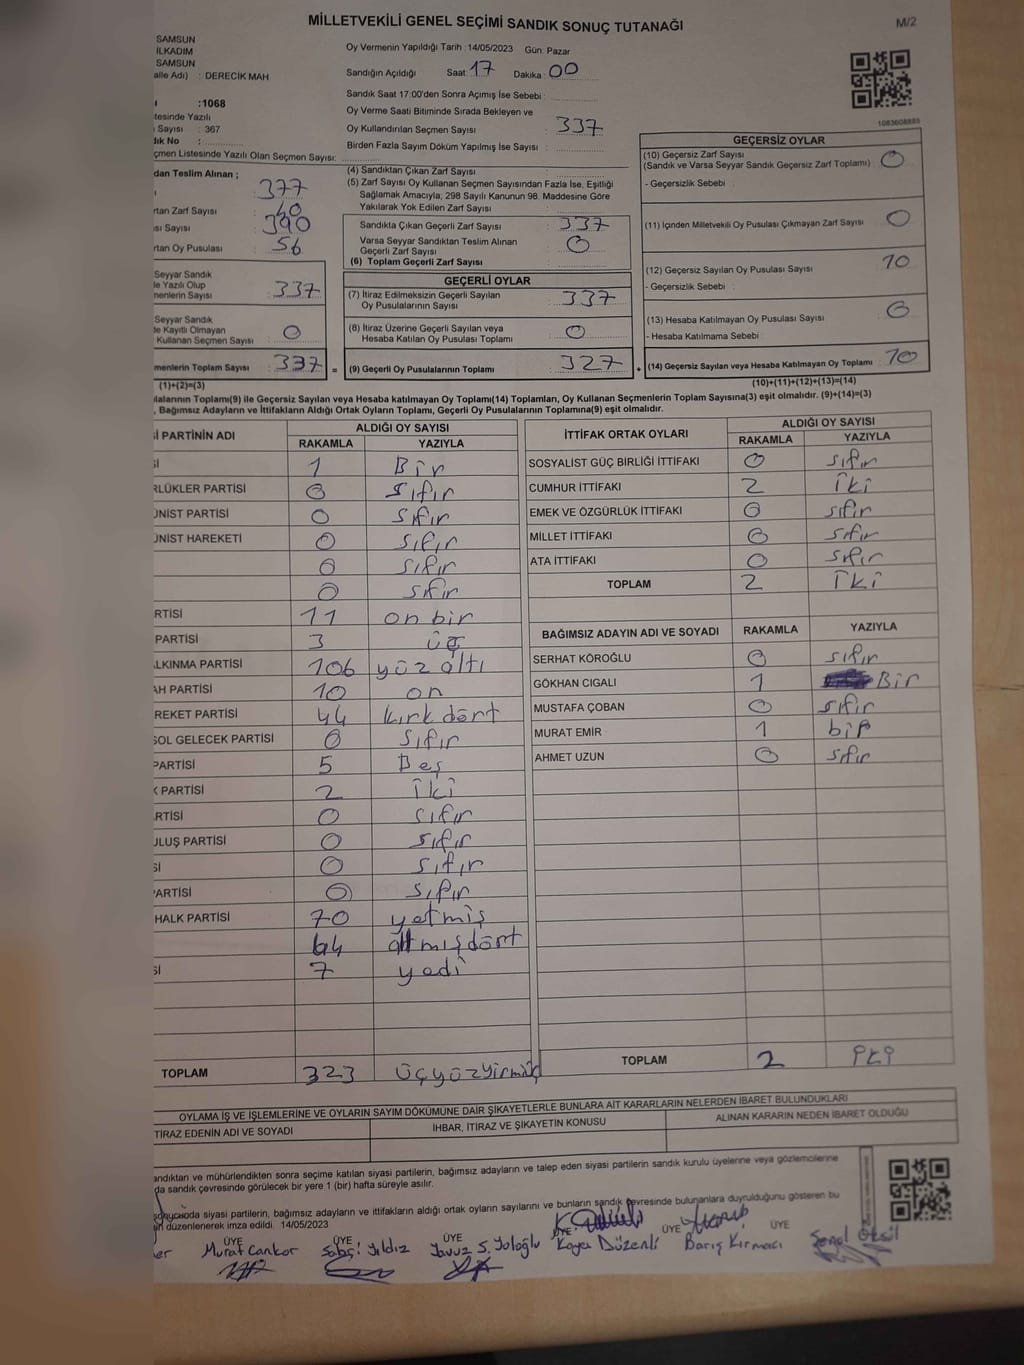 MİLLETVEKİLİ GENEL SEÇİMİ SANDIK SONUÇ TUTANAĞI
M/2
SAMSUN
İLKADIM
SAMSUN
alle Adı) : DERECİK MAH
Oy Vermenin Yapıldığı Tarih : 14/05/2023 Gün: Pazar
Sandığın Açıldığı Saat: 17 Dakika: 00
Sandık Saat 17:00'den Sonra Açmış İse Sebebi :
Oy Verme Saati Bitiminde Sırada Bekleyen ve
Oy Kullandırılan Seçmen Sayısı : 337
Birden Fazla Sayım Döküm Yapılmış İse Sayısı :
1083608885
:1068
tesinde Yazılı
Sayısı : 367
dık No :
çmen Listesinde Yazılı Olan Seçmen Sayısı:
dan Teslim Alınan ;
377
rtan Zarf Sayısı : 40
sı Sayısı : 390
rtan Oy Pusulası : 56
Seyyar Sandık
le Yazılı Olup
nenlerin Sayısı : 337
Seyyar Sandık
de Kayıtlı Olmayan
Kullanan Seçmen Sayısı : 0
menlerin Toplam Sayısı : 337
(1)+(2)=(3)
(4) Sandıktan Çıkan Zarf Sayısı :
(5) Zarf Sayısı Oy Kullanan Seçmen Sayısından Fazla İse, Eşitliği
Sağlamak Amacıyla; 298 Sayılı Kanunun 98. Maddesine Göre
Yakılarak Yok Edilen Zarf Sayısı :
Sandıkta Çıkan Geçerli Zarf Sayısı : 337
Varsa Seyyar Sandıktan Teslim Alınan
Geçerli Zarf Sayısı : 0
(6) Toplam Geçerli Zarf Sayısı :
GEÇERLİ OYLAR
(7) İtiraz Edilmeksizin Geçerli Sayılan
Oy Pusulalarının Sayısı : 337
(8) İtiraz Üzerine Geçerli Sayılan veya
Hesaba Katılan Oy Pusulası Toplamı : 0
= (9) Geçerli Oy Pusulalarının Toplamı : 327
GEÇERSİZ OYLAR
(10) Geçersiz Zarf Sayısı
(Sandık ve Varsa Seyyar Sandık Geçersiz Zarf Toplamı) : 0
- Geçersizlik Sebebi :
(11) İçinden Milletvekili Oy Pusulası Çıkmayan Zarf Sayısı : 0
(12) Geçersiz Sayılan Oy Pusulası Sayısı : 10
- Geçersizlik Sebebi :
(13) Hesaba Katılmayan Oy Pusulası Sayısı : 0
- Hesaba Katılmama Sebebi :
+ (14) Geçersiz Sayılan veya Hesaba Katılmayan Oy Toplamı : 10
(10)+(11)+(12)+(13)=(14)
ulalarının Toplamı(9) ile Geçersiz Sayılan veya Hesaba katılmayan Oy Toplamı(14) Toplamları, Oy Kullanan Seçmenlerin Toplam Sayısına(3) eşit olmalıdır. (9)+(14)=(3)
, Bağımsız Adayların ve İttifakların Aldığı Ortak Oyların Toplamı, Geçerli Oy Pusulalarının Toplamına(9) eşit olmalıdır.
İ PARTİNİN ADI ALDIĞI OY SAYISI
RAKAMLA YAZIYLA
Sİ 1 Bir
RLÜKLER PARTİSİ 0 sıfır
ÜNİST PARTİSİ 0 sıfır
ÜNİST HAREKETİ 0 sıfır
0 sıfır
0 sıfır
RTİSİ 11 on bir
PARTİSİ 3 üç
ALKINMA PARTİSİ 106 yüz altı
AH PARTİSİ 10 on
REKET PARTİSİ 44 kırk dört
SOL GELECEK PARTİSİ 0 sıfır
PARTİSİ 5 Beş
K PARTİSİ 2 iki
ARTİSİ 0 sıfır
ULUŞ PARTİSİ 0 sıfır
Sİ 0 sıfır
PARTİSİ 0 sıfır
HALK PARTİSİ 70 yetmiş
64 altmışdört
Sİ 7 yedi
TOPLAM 323 üçyüzyirmiüç
İTTİFAK ORTAK OYLARI ALDIĞI OY SAYISI
RAKAMLA YAZIYLA
SOSYALİST GÜÇ BİRLİĞİ İTTİFAKI 0 sıfır
CUMHUR İTTİFAKI 2 iki
EMEK VE ÖZGÜRLÜK İTTİFAKI 0 sıfır
MİLLET İTTİFAKI 0 sıfır
ATA İTTİFAKI 0 sıfır
TOPLAM 2 iki
BAĞIMSIZ ADAYIN ADI VE SOYADI RAKAMLA YAZIYLA
SERHAT KÖROĞLU 0 sıfır
GÖKHAN CIGALI 1 Bir
MUSTAFA ÇOBAN 0 sıfır
MURAT EMİR 1 bir
AHMET UZUN 0 sıfır
TOPLAM 2 iki
OYLAMA İŞ VE İŞLEMLERİNE VE OYLARIN SAYIM DÖKÜMÜNE DAİR ŞİKAYETLERLE BUNLARA AİT KARARLARIN NELERDEN İBARET BULUNDUKLARI
TİRAZ EDENİN ADI VE SOYADI İHBAR, İTİRAZ VE ŞİKAYETİN KONUSU ALINAN KARARIN NEDEN İBARET OLDUĞU
andıktan ve mühürlendikten sonra seçime katılan siyasi partilerin, bağımsız adayların ve talep eden siyasi partilerin sandık kurulu üyelerine veya gözlemcilerine
da sandık çevresinde görülecek bir yere 1 (bir) hafta süreyle asılır.
siyasi partilerin, bağımsız adayların ve ittifakların aldığı ortak oyların sayılarını ve bunların sandık çevresinde bulunanlara duyrulduğunu gösteren bu
düzenlenerek imza edildi. 14/05/2023
ÜYE ÜYE ÜYE ÜYE ÜYE ÜYE
Murat Cankor Yıldız Yavuz S. Yoloğlu Kaya Düzenli Barış Kırmacı